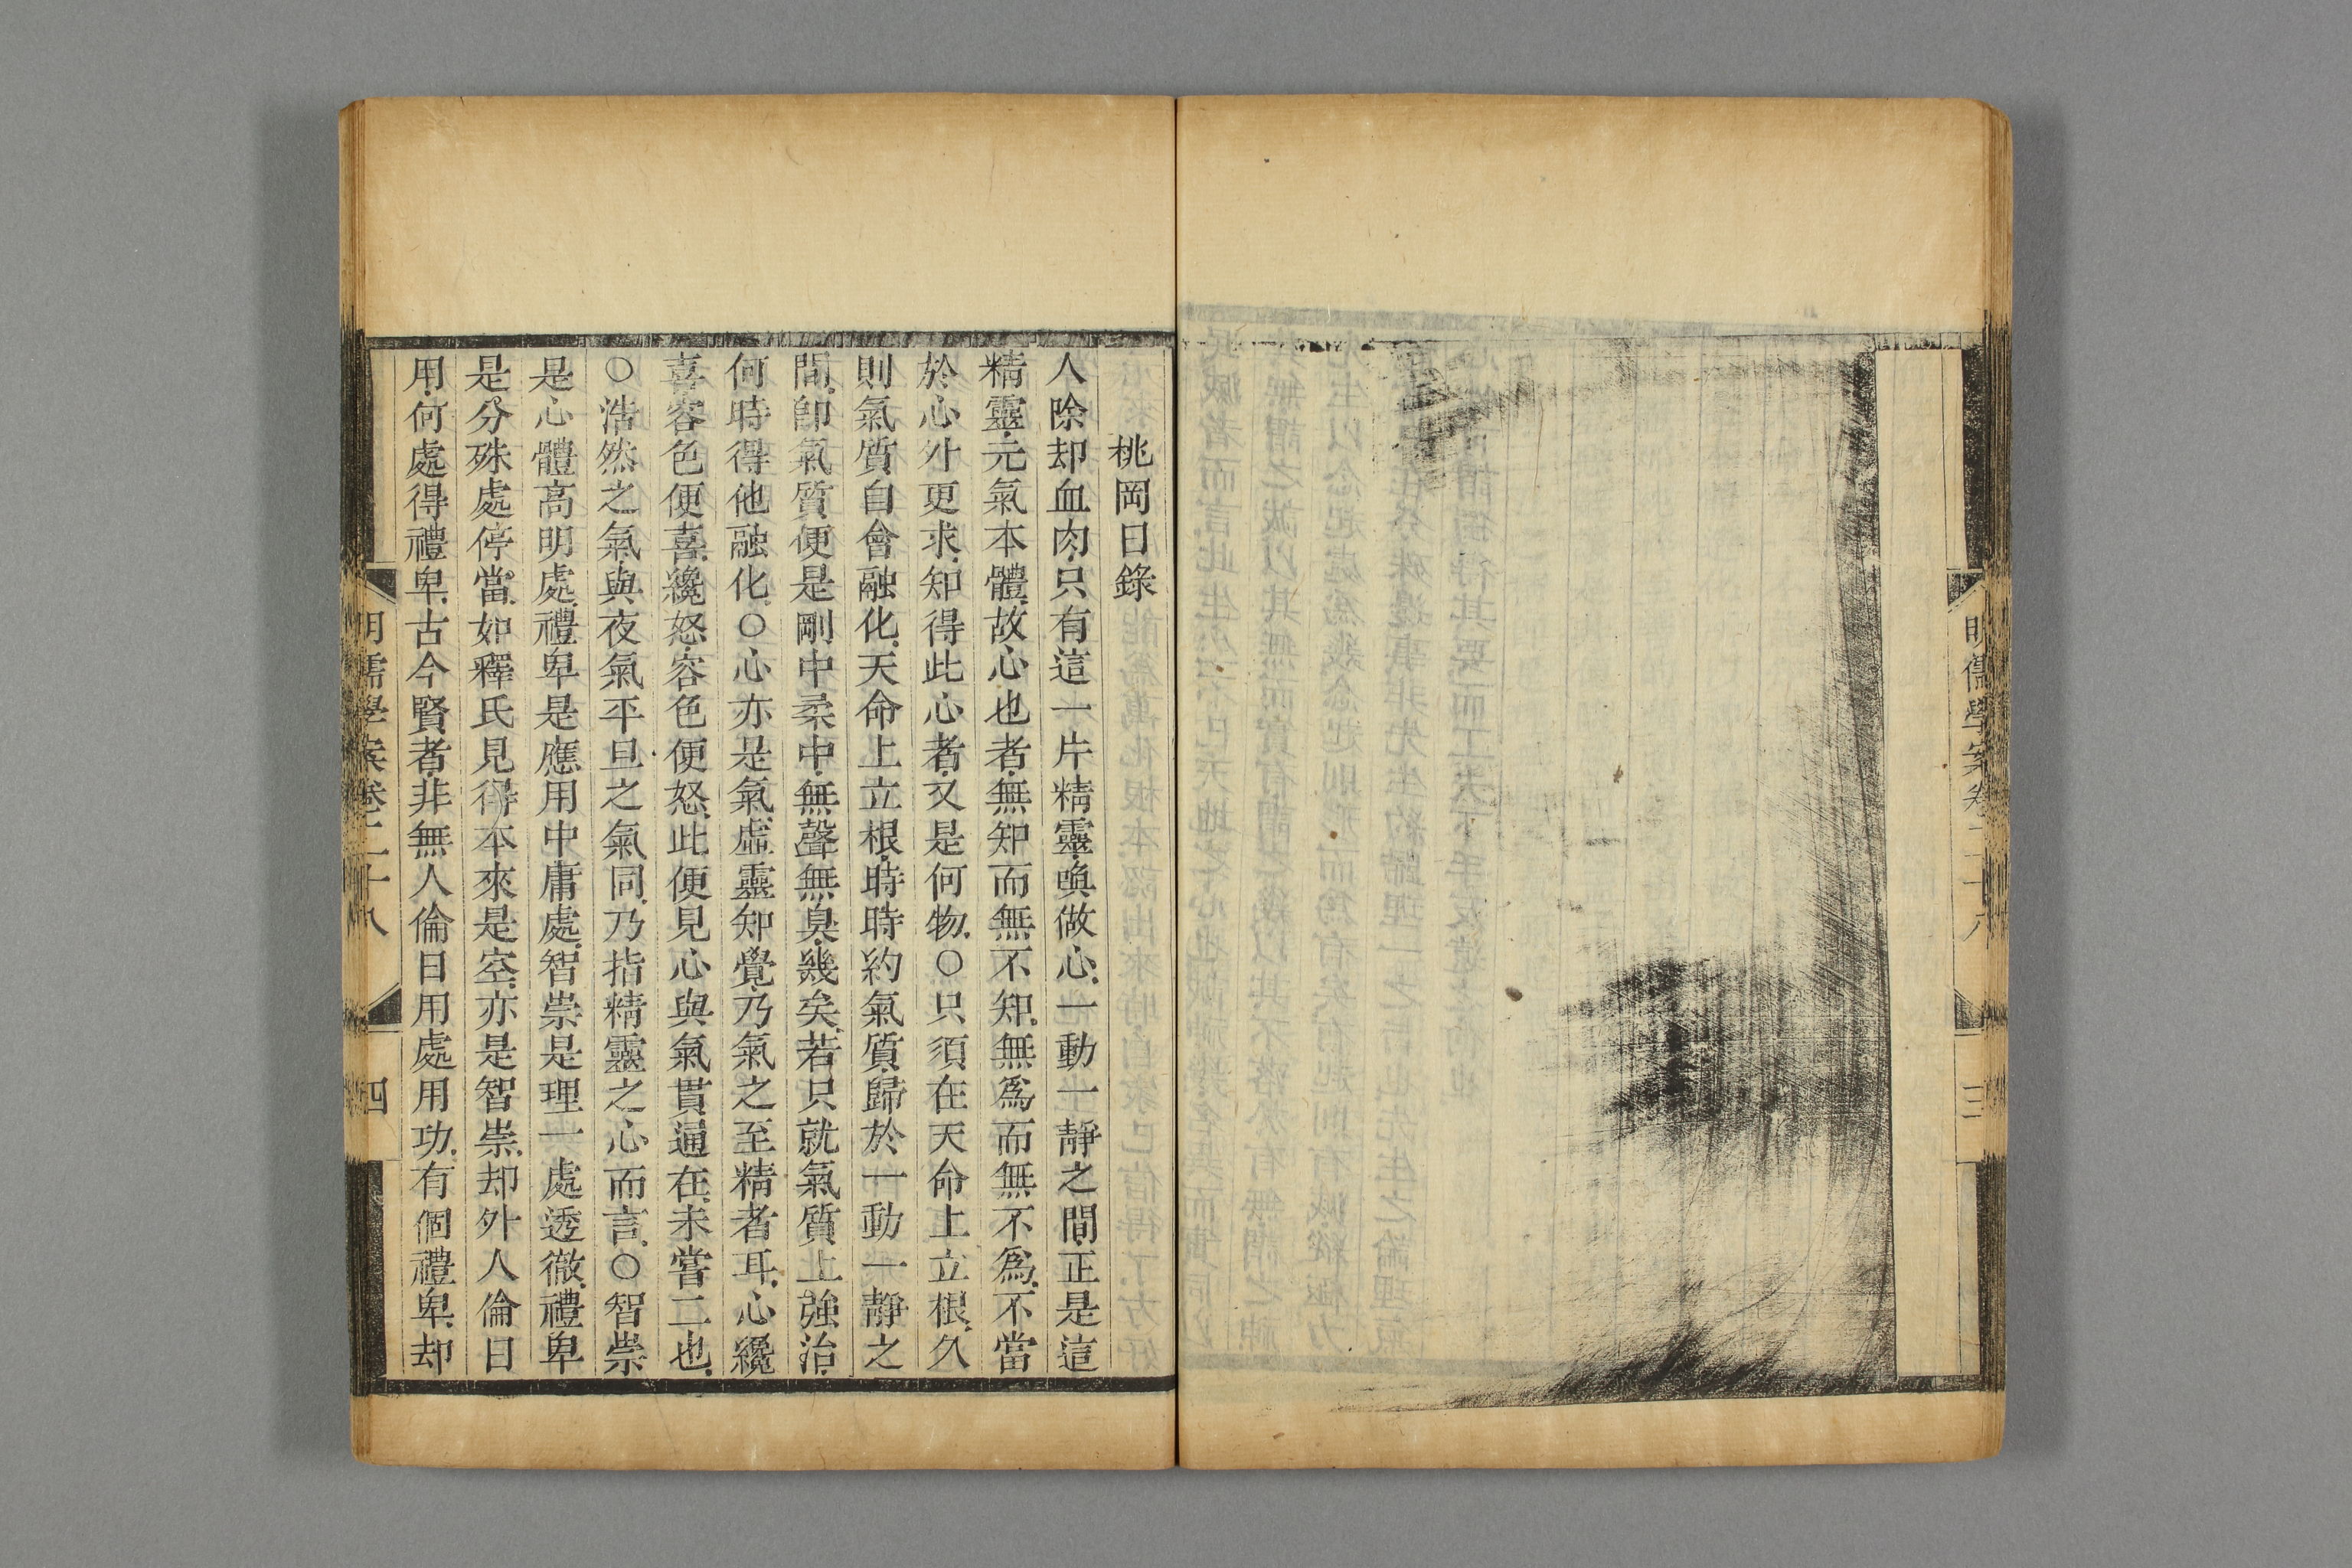 明儒學案卷二十八
三
桃岡日錄
人除却血肉只有這一片精靈喚做心一動一靜之間正是這
精靈元氣本體故心也者無知而無不知無爲而無不爲不當
於心外更求知得此心者又是何物〇只須在天命上立根久
則氣質自會融化天命上立根時時約氣質歸於一動一靜之
間卽氣質便是剛中柔中無聲無臭幾矣若只就氣質上強治
何時得他融化〇心亦是氣虛靈知覺乃氣之至精者耳心纔
喜容色便喜纔怒容色便怒此便見心與氣貫通在未嘗二也
〇浩然之氣與夜氣平旦之氣同乃指精靈之心而言〇智崇
是心體高明處禮卑是應用中庸處智崇是理一處透徹禮卑
是分殊處停當如釋氏見得本來是空亦是智崇却外人倫日
用何處得禮卑古今賢者非無人倫日用處用功有個禮卑却
明儒學案卷二十八
四